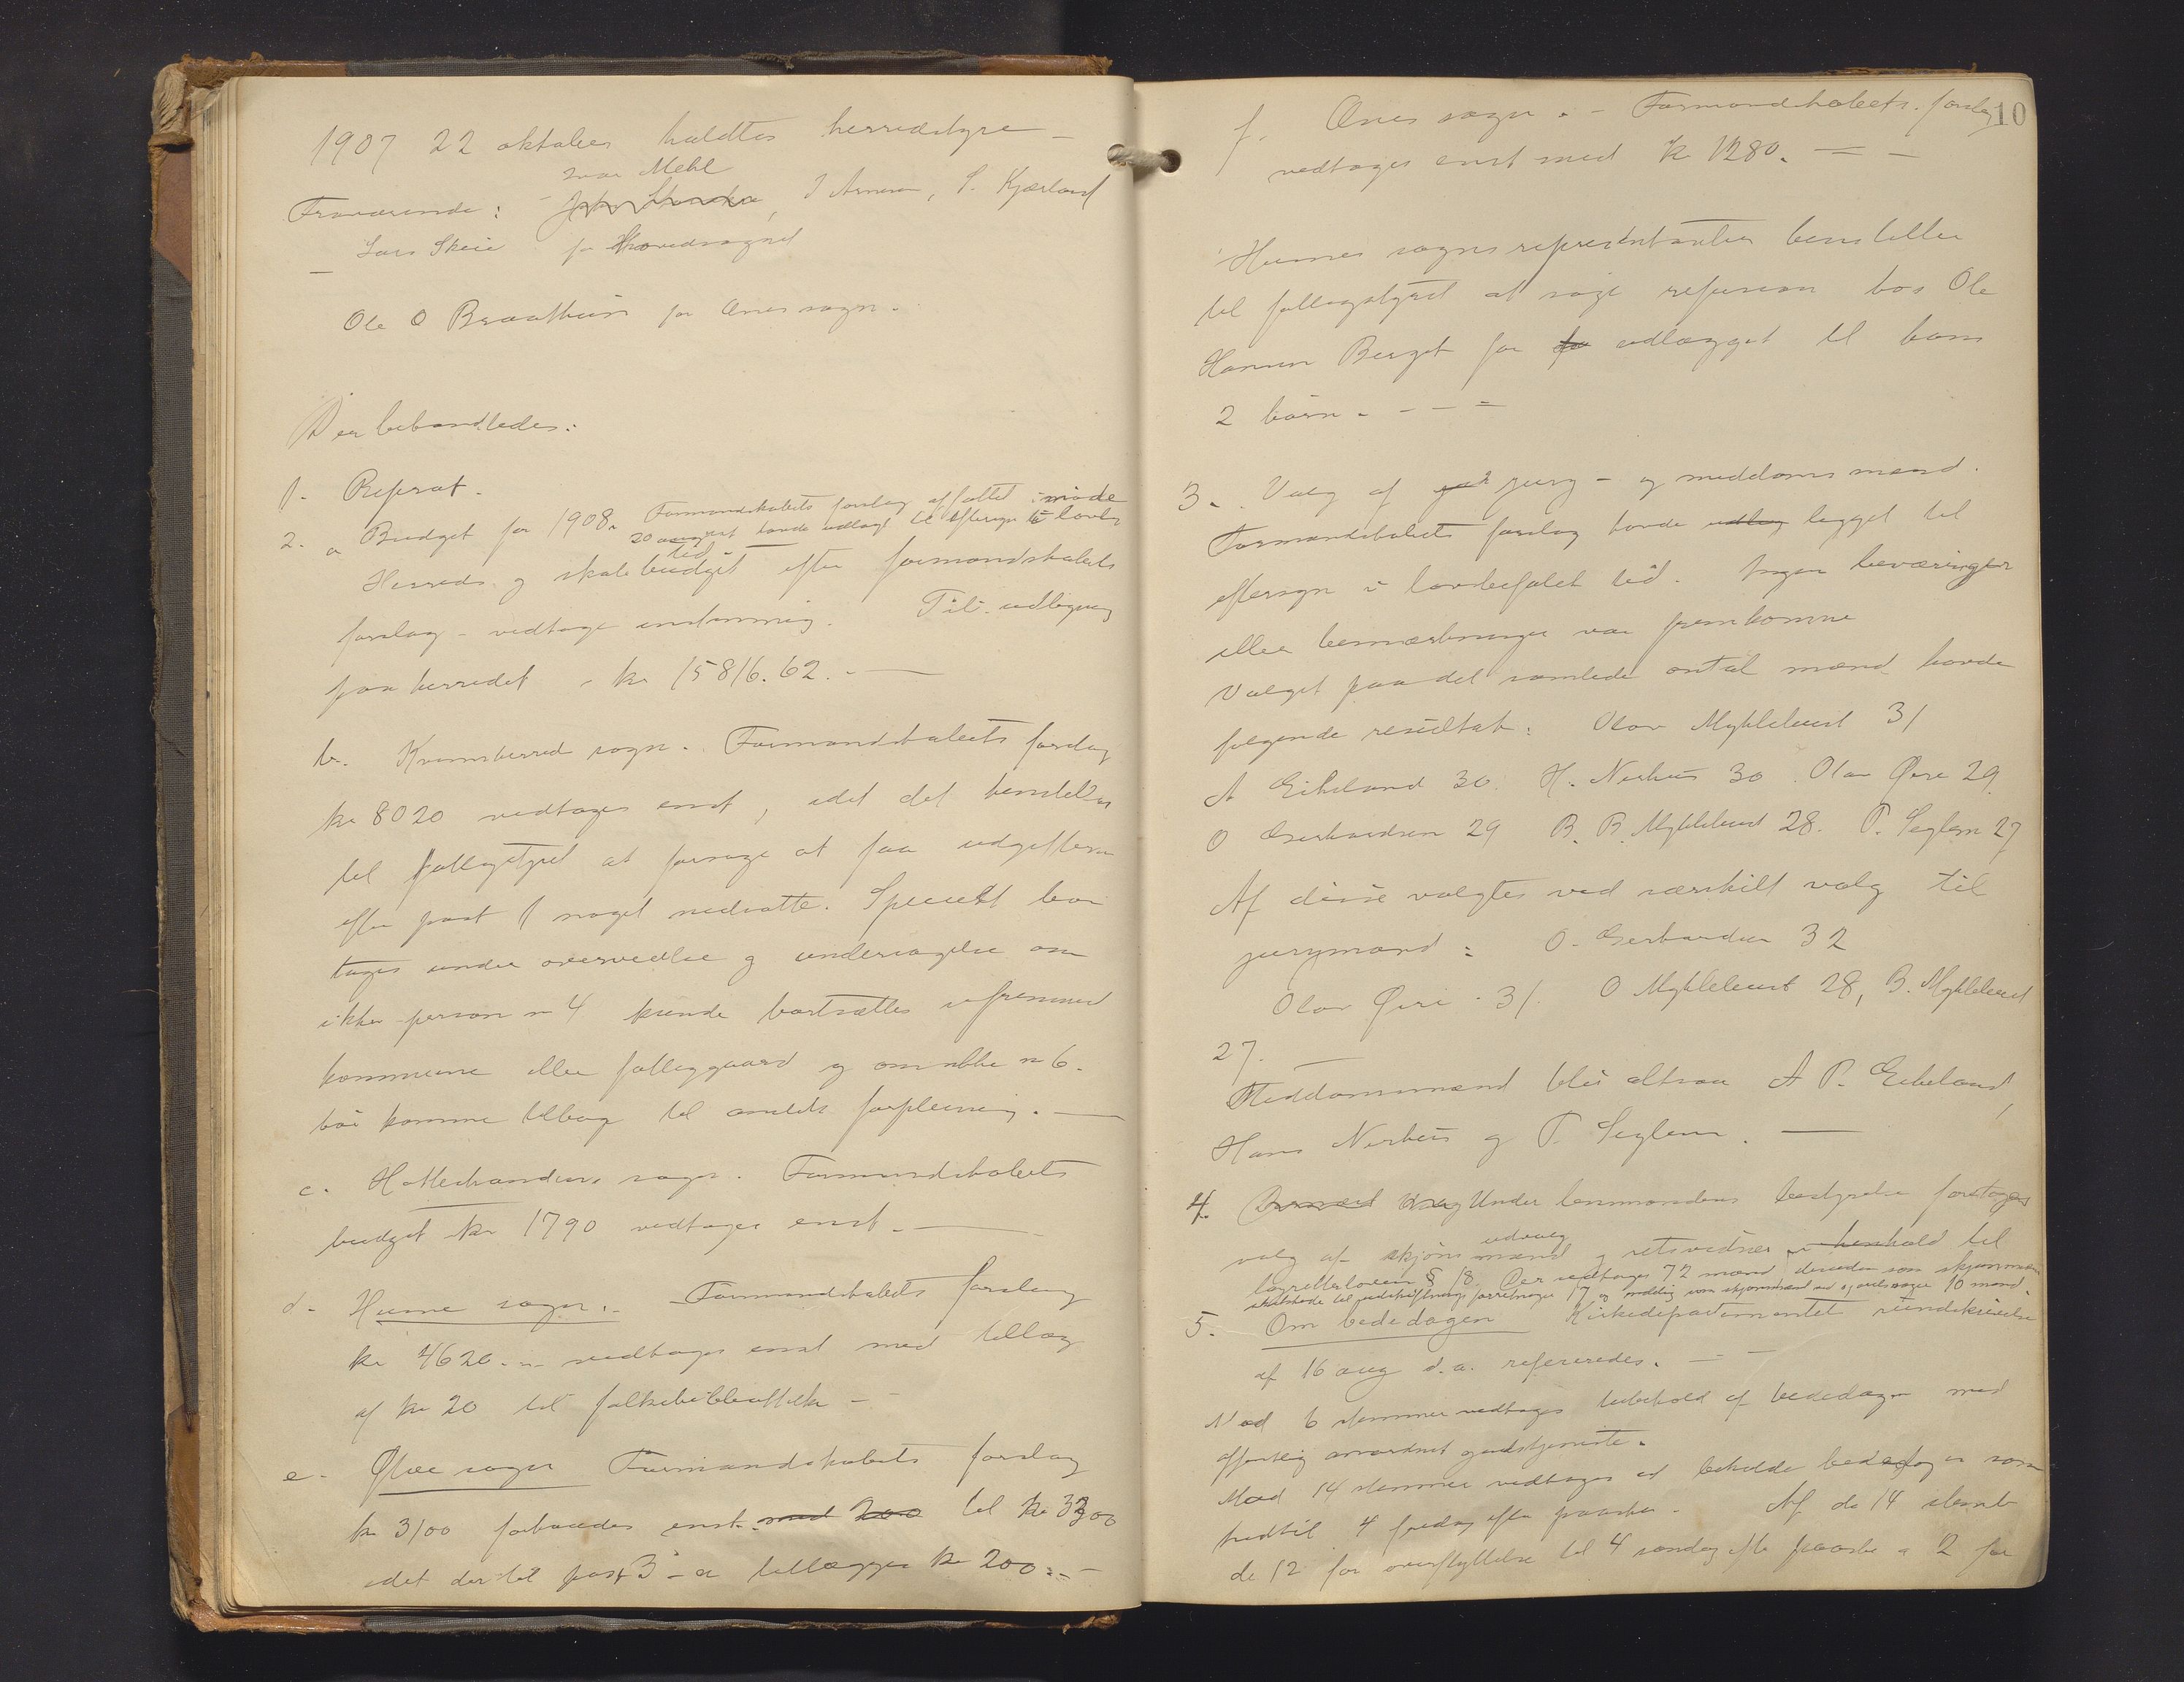 1907 22 oktober holdtes herredstyre –
Ivar Mehl
Fraværende: J Arnesen, S. Kjærland
– Lars Skeie for Hovedsognet
Ole O Braathun for Ænes sogn.
Der behandledes:
1. Referat.
2. a Budget for 1908. Formandskabets forslag affattet i møde
20 august havde udlagt til eftersyn i lovlig
tid
Herreds og skolebudget efter formandskabets
forslag – vedtages enstemmig. Til udligning
paa herredet – kr 15816.62. –
b. Kvinnherred sogn. Formandskabets forslag
kr 8020 vedtages enst, idet det henstilles
til fattigstyret at forsøge at faa udgifterne
efter post 1 noget nedsatte. Specielt bør
tages under overveielse og undersøgelse om
ikke person n 4 kunde bortsættes i fremmed
kommune eller fattiggaard og om ikke n 6.
bør komme tilbage til amtets forpleining. –
c. Holtestrandens sogn. Formandskabets
budget kr 1790 vedtages enst. –
d. Husnes sogn. – Formandskabets forslag
kr 4620. – vedtages enst med tillæg
af kr 20 til folkebibliothek –
e. Ølve sogn Formandskabets forslag
kr 3100 forhøiedes enst. med 200 til kr 3300
idet der til post 3 – a tillægges kr 200. –
10
f. Ænes sogn. – Formandskabets forslag
vedtages enst med kr 1280. –
Husnes sogns repræsentanter henstiller
til fattigstyret at søge refusion hos Ole
Hansen Berget for udlægget til hans
2 børn. – – –
3. Valg af jury – og meddoms mænd.
Formandskabets forslag havde udlag ligget til
eftersyn i lovbefalet tid. Ingen besværinger
eller bemærkninger var fremkomne
Valget paa det samlede antal mænd havde
følgende resultat: Olav Myklebust 31
A Eikeland 30. H. Nerhus 30. Olav Øvre 29.
O Gerhardsen 29 B. B. Myklebust 28. P. Seglem 27
Af disse valgtes ved særskilt valg til
jurymænd: O. Gerhardsen 32
Olav Øvre 31. O Myklebust 28, B. Myklebust
27. –
Meddomsmænd blir altsaa A P. Eikeland,
Hans Nerhus og P. Seglem. –
4. Under lensmandens bestyrelse foretages
udvalg
valg af skjøns mænd og retsvidner i henhold til
lagretteloven § 18. Der vedtages 72 mænd, desuden som skjønsmænd
udskiftnings forretninger 17 og som skjønsmænd ved 10 mænd.
5. Om bededagen Kirkedepartementet rundskrivelse
af 16 aug d.a. refereredes. – –
Mod 6 stemmer vedtages bibehold af bededagen med
offentlig anordnet gudstjeneste.
Mod 14 stemmer vedtages at beholde bededagen som
hidtil 4 fredag efter paaske. – Af de 14 stemte
de 12 for overflyttelse til 4 søndag efter paaske og 2 for